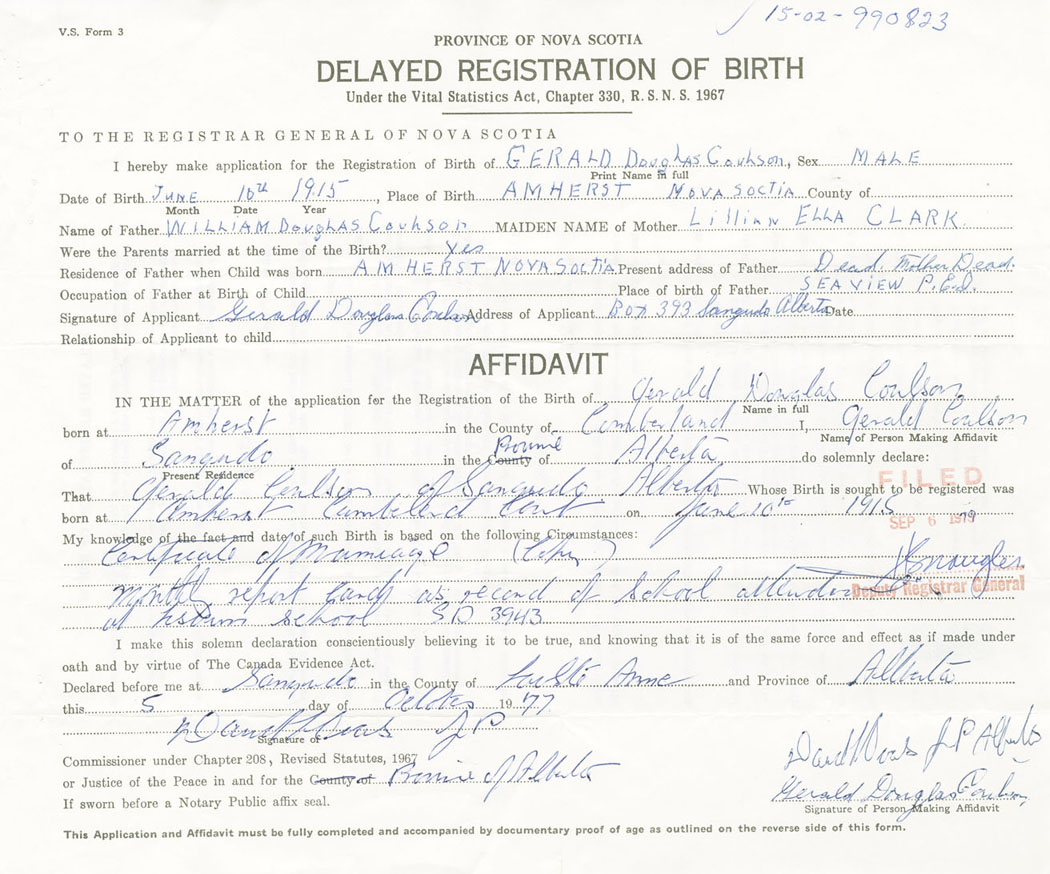 15-02-990823
V.S. Form 3
PROVINCE OF NOVA SCOTIA
DELAYED REGISTRATION OF BIRTH
Under the Vital Statistics Act, Chapter 330, R.S.N.S. 1967
TO THE REGISTRAR GENERAL OF NOVA SCOTIA
I hereby make application for the Registration of Birth of GERALD Douglas Coulson, Sex MALE
Print Name in full
Date of Birth JUNE 10th 1915, Place of Birth AMHERST NOVA SOCTIA County of
Month Date Year
Name of Father WILLIAM Douglas Coulson MAIDEN NAME of Mother Lillian ELLA CLARK
Were the Parents married at the time of the Birth? Yes
Residence of Father when Child was born AMHERST NOVA SOCTIA Present address of Father Dead. Mother Dead.
Occupation of Father at Birth of Child Place of birth of Father SEAVIEW P.E.I.
Signature of Applicant Gerald Douglas Coulson Address of Applicant Box 393 Sangudo Alberta Date
Relationship of Applicant to child
AFFIDAVIT
IN THE MATTER of the application for the Registration of the Birth of Gerald Douglas Coulson
Name in full
born at Amherst in the County of Cumberland I, Gerald Coulson
Name of Person Making Affidavit
of Sangudo in the County of Alberta do solemnly declare:
Present Residence
That Gerald Coulson of Sangudo Alberta Whose Birth is sought to be registered was
FILED
born at Amherst on June 10th 1915
SEP 6 1979
My knowledge of the fact and date of such Birth is based on the following Circumstances:
Certificate of Marriage
Deputy Registrar General
monthly report cards as record of School
at school SD 3943
I make this solemn declaration conscientiously believing it to be true, and knowing that it is of the same force and effect as if made under
oath and by virtue of The Canada Evidence Act.
Declared before me at Sangudo in the County of Lac Ste Anne and Province of Alberta
this 5 day of October 19 '77
J P
Signature of
Commissioner under Chapter 208, Revised Statutes, 1967
or Justice of the Peace in and for the County of Province of Alberta
J P Alberta
Gerald Douglas Coulson
Signature of Person Making Affidavit
If sworn before a Notary Public affix seal.
This Application and Affidavit must be fully completed and accompanied by documentary proof of age as outlined on the reverse side of this form.